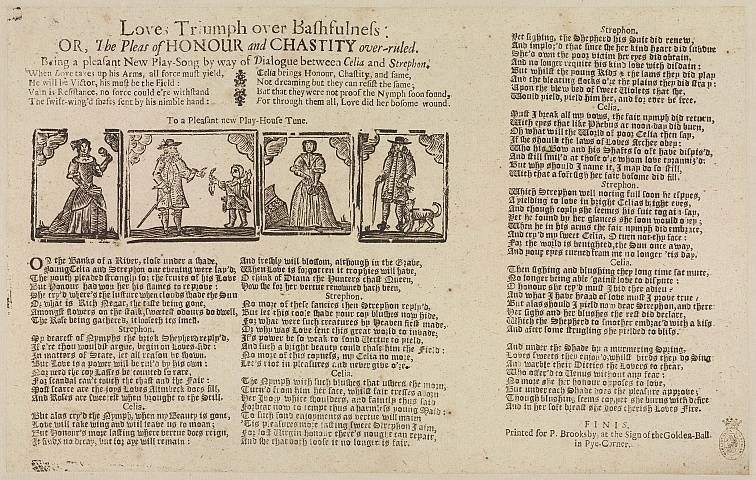 Loves Triumph over Bashfulness:
OR, The Pleas of HONOUR and CHASTITY over-ruled.
Being a pleasant New Play-Song by way of Dialogue between Celia and Strephon.
When Love takes up his Arms, all force must yield,
He will be Victor, his must be the Field:
Vain is Resistance, no force could e're withstand
The swift-wing'd shafts sent by his nimble hand:
Celia brings Honour, Chastity, and fame,
Not dreaming but they can resist the same;
But that they were not proof the Nymph soon found,
For through them all, Love did her bosome wound.
To a Pleasant new Play-House Tune.
ON the Banks of a River, close under a shade,
young Celia and Strephon one evening were lay'd;
The youth pleaded strongly for the fruits of his Love
But Honour had won her his flames to reprove:
She cry'd where's the lustre when clouds shade the Sun
O, what is Rich Nectar, the taste being gone,
Amongst flowers on the stalk, sweetest odours do dwell,
The Rose being gathered, it loseth its smell.
Strephon.
My dearest of Nymphs the brisk Shepherd reply'd,
If e're thou wilt argue, begin on Loves side:
In matters of State, let all reason be shown,
But Love is a power will be rul'd by his own:
Nor need the coy Lasses be counted so rare,
For scandal can't touch the chast and the Fair:
Most scarce are the joys Loves Alimbeck does fill,
And Roses are sweetest when brought to the Still.
Celia.
But alas cry'd the Nymph, when my Beauty is gone,
Love will take wing and will leave us to moan;
But Honour's more lasting where vertue does reign,
It finds no decay, but for aye will remain:
And freshly will blossom, although in the Grave,
When Love is forgotten it trophies will have,
O think of Diana the Hunters chast Queen,
How she for her vertue renowned hath been.
Strephon.
No more of these fancies then Strephon reply'd,
But let this cool shade your coy blushes now hide,
For what were such creatures by Heaven first made,
Or why was Love sent this great world to invade;
It's power be so weak to send Vertue to yield,
And such a bright beauty could chase him the Field:
No more of this coyness, my Celia no more,
Let's riot in pleasures and never give o're.
Celia.
The Nymph with such blushes that ushers the morn,
Turn'd from him her face, whilst fair tresses adorn
Her Ivory white shoulders, and faintly thus said
Forbear now to tempt thus a harmless young Maid:
To such fond enjoyments as vertue will maim,
'Tis pleasures more lasting sweet Strephon I aim,
For lost Virgin honour there's nought can repair,
And she that doth loose it no longer is fair.
Strephon.
Yet sighing, the Shepherd his Suit did renew,
And implor'd that since she her kind heart did subdue
She'd own the poor victim her eyes did obtain,
And no longer requite his kind love with disdain:
But whilst the young Kids & the lams they did play
And the bleating flocks o'er the plains they did stray:
Upon the blew bed of sweet Violets that she,
Would yield, yield him her, and for ever be free.
Celia.
Must I break all my vows, the fair nymph did return,
With eyes that like Phebus at noon-day did burn,
Oh what will the World of poor Celia then say,
If she should the laws of Loves Archer obey:
Who his Bow and his Shafts so oft have dispis'd,
And still smil'd at those o're whom love tyranniz'd:
But why should I name it, I may do so still,
With that a soft sigh her fair bosome did fill.
Strephon.
Which Strephon well noting full soon he espyes,
A yielding to love in bright Celias bright eyes,
And though coyly she seemes his suit to gain-say,
Yet he found by her glances she soon would obey;
When he in his arms the fair nymph did embrace,
And cry'd my sweet Celia, O turn not thy face:
For the world is benighted, the Sun once away,
And your eyes turned from me no longer 'tis day.
Celia.
Then sighing and blushing they long time sat mute,
No longer being able 'gainst love to dispute:
O honour she cry'd must I bid thee adieu:
And what I have dread of love must I prove true:
But alas should I yield my dear Strephon, and there
Her sighs and her blushes the rest did declare,
Which the Shepherd to smother embrac'd with a kiss
And after some strugling she yielded to bliss.
And under the Shade by a murmering Spring,
Loves sweets they enjoy'd, whilst birds they do Sing
And warble their Ditties the Lovers to chear,
Who offer'd to Venus without any fear:
No more she her honour opposes to love,
But under each Shade does the pleasure approve;
Though blushing seems coy, yet she burns with desire
And in her soft breast she does cherish Loves Fire.
FINIS.
Printed for P. Brooksby, at the Sign of the Golden-Ball
in Pye-Corner.